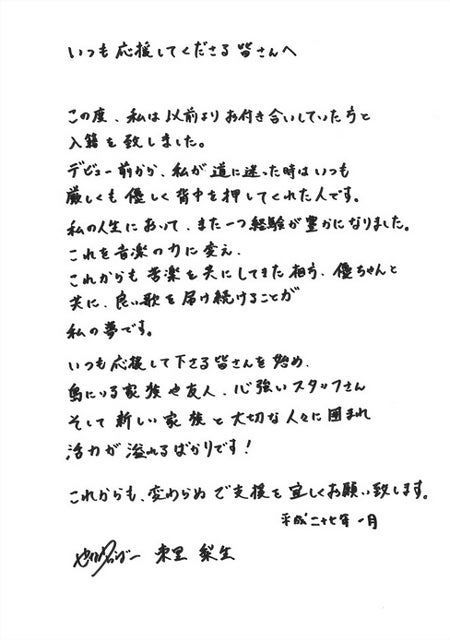 いつも応援してくださる皆さんへ
この度、私は以前よりお付き合いしていた方と
入籍を致しました。
デビュー前から、私が道に迷った時はいつも
厳しくも優しく背中を押してくれた人です。
私の人生において、また一つ経験が豊かになりました。
これを音楽の力に変え、
これからも苦楽を共にしてきた相方、優ちゃんと
共に、良い歌を届け続けることが
私の夢です。
いつも応援して下さる皆さんを始め、
島にいる家族や友人、心強いスタッフさん
そして新しい家族と大切な人々に囲まれ
活力が溢れるばかりです!
これからも、変わらぬご支援を宜しくお願い致します。
平成二十七年一月
東里 梨生